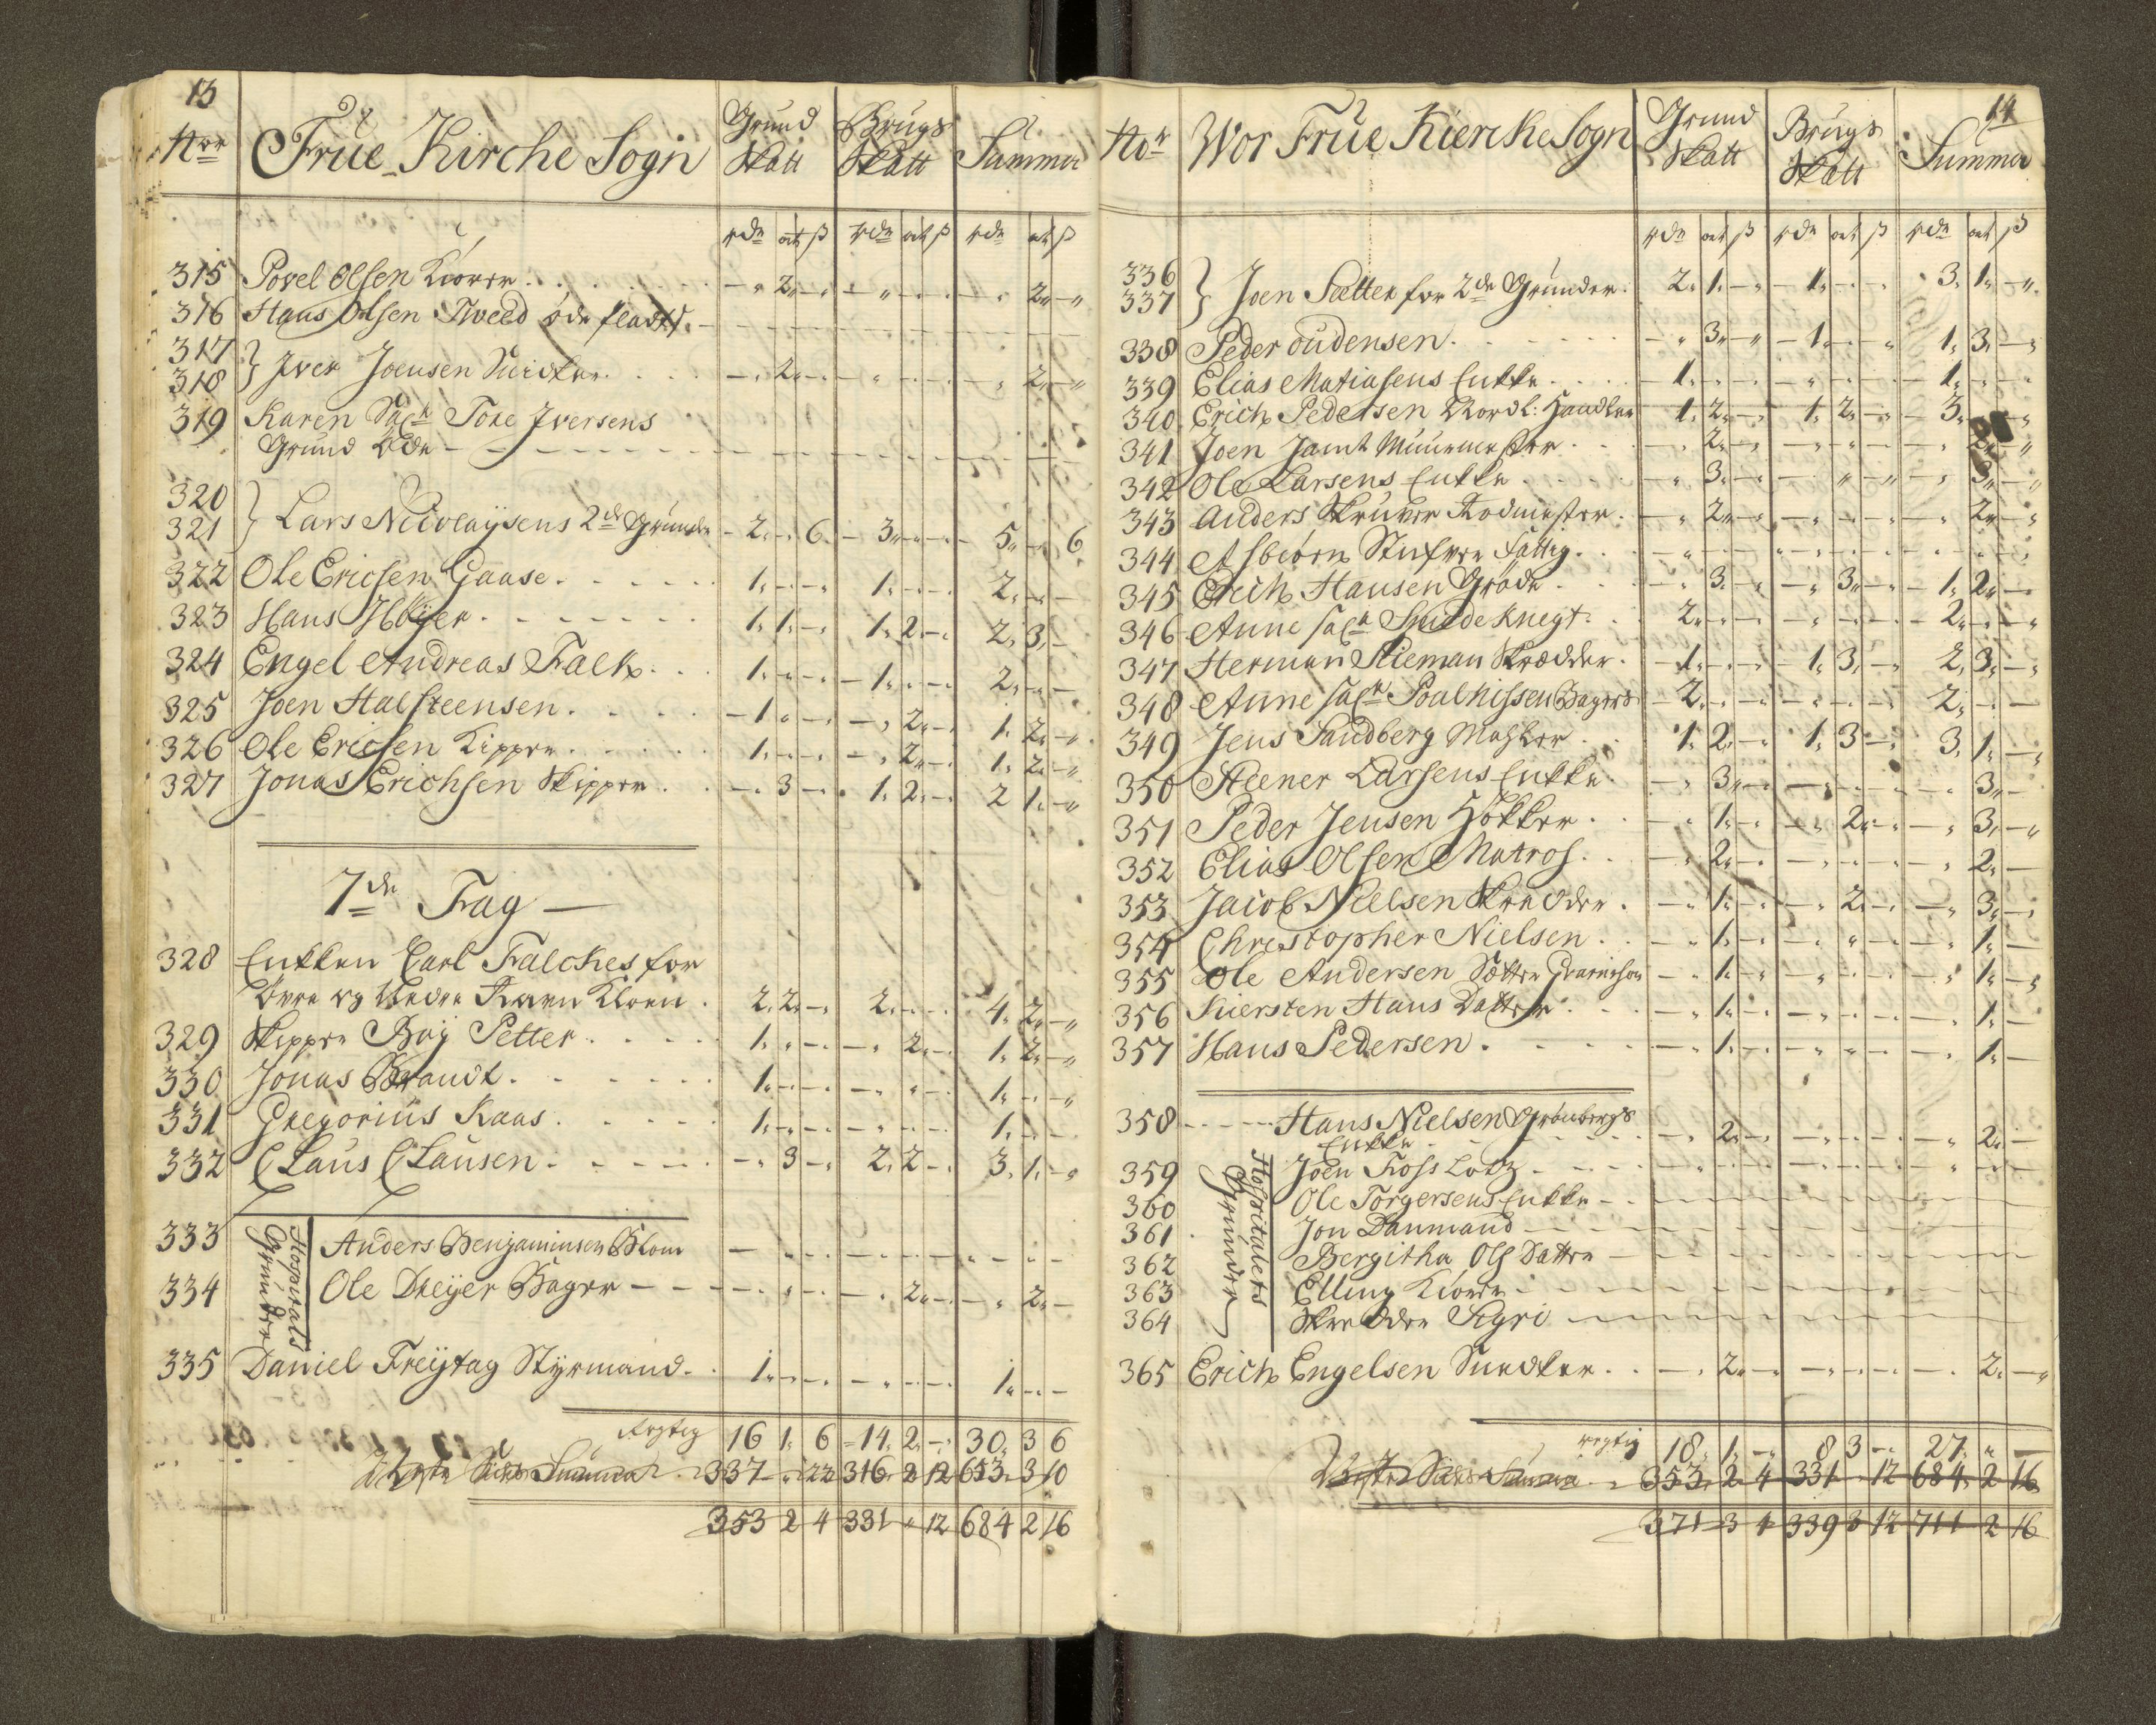 13
Nro Früe Kirche Sogn Grund Skatt Brugs Skatt Summa
rdr ort ß rdr ort ß rdr ort ß
315 Povel Olsen Kiörer - 2 - - - - - 2 -
316 Hans Olsen Tweed öde
317
318 } Iver Joensen - 2 - - - - - 2 -
319 Karen Sal Tore Iversens
Grund Öde
320
321 } Lars Nicolaÿsens 2de Grunde 2 - 6 3 - - 5 - 6
322 Ole Ericsen Gaase 1 - - 1 - - 2 - -
323 Hans Höÿer 1 1 - 1 2 - 2 3 -
324 Engel Andreas Falk 1 - - 1 - - 2 - -
325 Joen Halsteensen 1 - - - 2 - 1 2 -
326 Ole Ericsen Kipper 1 - - - 2 - 1 2 -
327 Jonas Erichsen Skipper - 3 - 1 2 - 2 1 -
7de Fag
328 Enkken Carl Falches for
övre og Nedre Kloen 2 2 - 2 - - 4 2 -
329 Skipper Boÿ Petter 1 - - - 2 - 1 2 -
330 Jonas Brandt 1 - - - - - 1 - -
331 Gregorius Kaas 1 - - - - - 1 - -
332 Claus Clausen - 3 - 2 2 - 3 1 -
Hospitals Grundre
333 Anders Benjaminsen Blom
334 Ole Dreÿer Bager - - - - 2 - - 2 -
335 Daniel Freÿtag Stÿrmand 1 - - - - - 1 - -
rigtig 16 1 6 14 2 - 30 3 6
Sides Summa 337 - 22 316 2 12 653 3 10
353 2 4 331 - 12 684 2 16
14
No Wor Früe Kiercke Sogn Grund Skatt Brugs Skatt Summa
rdr ort ß rdr ort ß rdr ort ß
336
337 } Joen Sætter for 2de Grunder 2 1 - 1 - - 3 1 -
338 Peder oudensen - 3 - 1 - - 1 3 -
339 Elias Matiasens Enkke 1 - - - - - 1 - -
340 Erich Pedersen Nordl: Handler 1 2 - 1 2 - 3 - -
341 Joen Jamt Muurmester - 2 - - - - - 2 -
342 Ole Larsens Enkke - 3 - - - - - 3 -
343 Anders Skriver Rodmester - 2 - - - - - 2 -
344 Asbiörn Fattig
345 Erich Hansen Gröde - 3 - - 3 - 1 2 -
346 Anne Sal Smidde Knegt 2 - - - - - 2 - -
347 Herman Nieman Skrædder 1 - - 1 3 - 2 3 -
348 Anne Sal Poul Nissen Bagers 2 - - - - - 2 - -
349 Jens Sandberg Mahler 1 2 - 1 3 - 3 1 -
350 Steener Larsens Enkke - 3 - - - - - 3 -
351 Peder Jensen Hökker - 1 - - 2 - - 3 -
352 Elias Olsen Matros - 2 - - - - - 2 -
353 Jacob Nielsen Skredder - 1 - - 2 - - 3 -
354 Christopher Nielsen - 1 - - - - - 1 -
355 Ole Andersen Sætter - 1 - - - - - 1 -
356 Kiersten Hans Datter - 1 - - - - - 1 -
357 Hans Pedersen - 1 - - - - - 1 -
358 Hans Nielsen Grönbergs
Enkke - 2 - - - - - 2 -
Hospitalets Grunder
359 Joen Foss Lodz
360 Ole Torgersens Enkke
361 Jon Danmand
362 Bergitha Ols Datter
363 Elling Kiörer
364 Skredder Sigri
365 Erich Engelsen Snedker - 2 - - - - - 2 -
rigtig 18 1 - 8 3 - 27 - -
Sides Summa 353 2 4 331 - 12 684 2 16
371 3 4 339 3 12 711 2 16